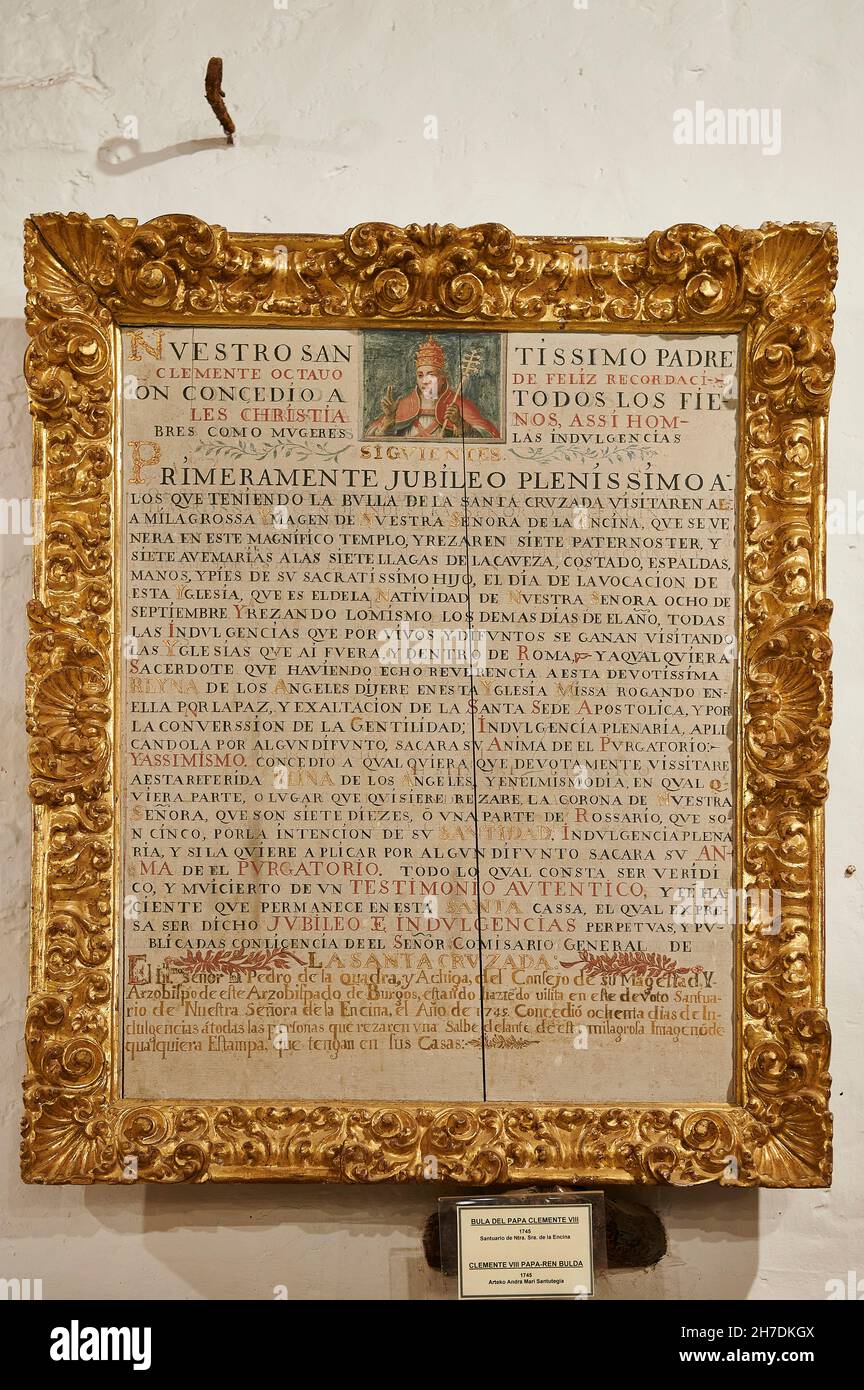 NVESTRO SANTÍSSIMO PADRE
CLEMENTE OCTAUO DE FELÍZ RECORDACI-
ON CONCEDIO A TODOS LOS FÍE-
LES CHRÍSTÍANOS, ASSÍ HOM-
BRES COMO MVGERES LAS INDVLGENCÍAS
SÍGVIENTES.
PRÍMERAMENTE JUBÍLEO PLENÍSSÍMO A-
LOS QVE TENÍENDO LA BVLLA DE LA SANTA CRVZADA VÍSÍTAREN AE
A MÍLAGROSSA YMAGEN DE NVESTRA SEÑORA DE LA ENCÍNA, QVE SE VE
NERA EN ESTE MAGNÍFÍCO TEMPLO, Y REZAREN SÍETE PATERNOSTER, Y
SÍETE AVEMARÍAS A LAS SÍETE LLAGAS DE LA CAVEZA, COSTADO, ESPALDAS,
MANOS, Y PÍES DE SV SACRATÍSSÍMO HÍJO, EL DÍA DE LA VOCACION DE
ESTA YGLESÍA, QVE ES EL DE LA NATÍVÍDAD DE NVESTRA SEÑORA OCHO DE
SEPTÍEMBRE Y REZANDO LO MÍSMO LOS DEMAS DÍAS DE EL AÑO, TODAS
LAS ÍNDVLGENCÍAS QVE POR VÍVOS Y DÍFVNTOS SE GANAN VÍSÍTANDO
LAS YGLESÍAS QVE AÍ FVERA, Y DENTRO DE ROMA, Y A QVALQVÍERA
SACERDOTE QVE HAVÍENDO ECHO REVERENCÍA A ESTA DEVOTÍSSÍMA
REYNA DE LOS ANGELES DÍJERE EN ESTA YGLESÍA MÍSSA ROGANDO EN-
ELLA POR LA PAZ, Y EXALTACÍON DE LA SANTA SEDE APOSTOLÍCA, Y POR
LA CONVERSSÍON DE LA GENTÍLÍDAD, ÍNDVLGENCÍA PLENARÍA, APLÍ
CANDOLA POR ALGVN DÍFVNTO, SACARA SV ANÍMA DE EL PVRGATORÍO:
Y ASSÍMÍSMO. CONCEDÍO A QVALQVÍERA QVE DEVOTAMENTE VÍSSÍTARE
A ESTA REFERÍDA REÍNA DE LOS ANGELES, Y EN EL MÍSMO DÍA, EN QVAL Q
VÍERA PARTE, O LVGAR QVE QVÍSÍERE REZARE, LA CORONA DE NVESTRA
SEÑORA, QVE SON SÍETE DÍEZES, O VNA PARTE DE ROSSARÍO, QVE SO-
N CÍNCO, POR LA ÍNTENCÍON DE SV SANTÍDAD. ÍNDVLGENCÍA PLENA
RÍA, Y SÍ LA QVÍERE APLÍCAR POR ALGVN DÍFVNTO SACARA SV ANI-
MA DE EL PVRGATORÍO. TODO LO QVAL CONSTA SER VERÍDÍ
CO, Y MVÍ CÍERTO DE VN TESTÍMONÍO AVTENTÍCO, Y FÉ HA-
CÍENTE QVE PERMANECE EN ESTA SANTA CASSA, EL QVAL EXPRE-
SA SER DÍCHO JVBÍLEO E ÍNDVLGENCÍAS PERPETVAS, Y PV-
BLÍCADAS CON LÍCENCÍA DE EL SEÑOR COMÍSARÍO GENERAL DE
LA SANTA CRVZADA:
El Illmo. Señor D. Pedro de la Quadra, y Achiga, del Consejo de su Magestad, Y
Arzobispo de este Arzobispado de Burgos, estando haziendo visita en este devoto Santua-
rio de Nuestra Señora de la Encina, el Año de 1745. Concedió ochenta dias de In-
dulgencias á todas las personas que rezaren vna Salbe delante de esta milagrosa Imagen, ó de
qualquiera Estampa, que tengan en sus Casas:
BULA DEL PAPA CLEMENTE VIII
1745
Santuario de Ntra. Sra. de la Encina
CLEMENTE VIII PAPA-REN BULDA
1745
Arteko Andra Mari Santutegia
alamy
Image ID: 2H7DKGX
www.alamy.com